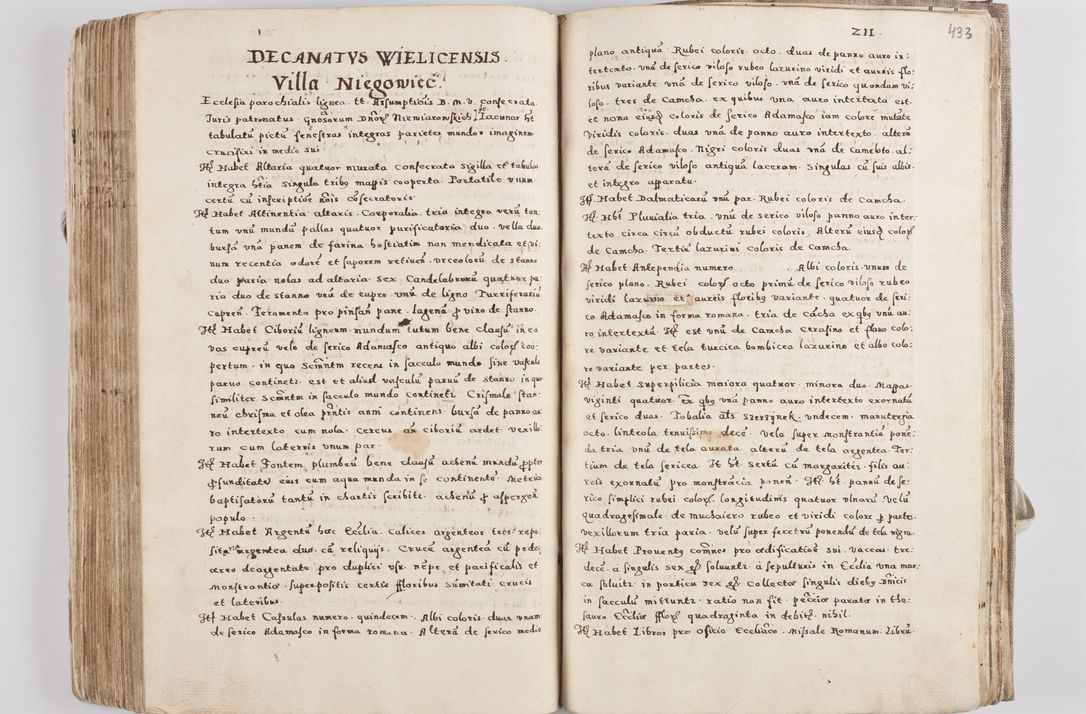 DECANATVS WIELICENSIS.
Villa Niegowiec.
Ecclesia parochialis lignea tt. Assumptiõis B. M. V. consecrata
Iuris patronatus gnõsorum Dñorꝝ Niewiarowskich. Lacunar ht
tabulatũ pictũ fenestras integras parietes mundos imaginem
crucifixi in medio sui.
Itẽ Habet Altaria quatuor murata consecrata sigilla et tabulas
integra htia singula tribus mappis cooperta. Portatile vnum
certũ cũ inscriptiõe nõis cõsecratoris
Itẽ Habet Attinentia altaris. Corporalia tria integra verũ tan⹀
tum vnũ mundũ pallas quatuor purificatoria duo. vella duo
bursã vnã panem de farina hostiatim non mendicata et vi⹀
num recentia odorẽ et saporem retinen. vrceolorũ de stanno
duo paria nolas ad altaria sex Candelabrorũ quatuor pa⹀
ria duo de stanno vnũ de cupro vnũ de ligno Turriferariũ
cupreũ. Feramenta pro pinsan pane. lagenã ꝑ vino de stanno.
Itẽ Habet Ciboriũ ligneum mundum tutum bene clausũ in eo
vas cupreũ velo de serico Adamasco antiquo albi colorꝭ coo⹀
pertum. in quo Scm̃ntm recens in sacculo mundo sine vasculo
paruo continetꝛ. est et aliud vasculũ paruũ de stanno in quo
similiter Scm̃ntm in sacculo mundo continetꝛ. Crismale stan⹀
neũ chrisma et olea pñtis anni continens. bursã de panno au⹀
ro intertexto cum nola. cereus añ ciboriũ ardet. vexillo⹀
rum cum laternis vnum par.
Itẽ Habet Fontem plumbeũ bene clausũ achenũ mundũ ꝓpter
ꝓfunditatẽ eius cum aqua munda in se continentẽ. Metrica
baptisatorũ tantũ in chartis scribitꝛ. achenũ ꝑ aspergen
populo.
Itẽ Habet Argentũ hac Ecclia. Calices argenteos tres repo⹀
sitũ argentea duo. cũ reliquijs. Crucẽ argenteã cũ pede
æreo deargentato pro duplici vsu nẽpe et pacificalis et
monstrantiæ. superpositis certis floribus sũmitati crucis
et lateribus.
Itẽ Habet Casulas numero quindecim. Albi coloris duas vnam
de serico Adamasco in forma romana. Alterã de serico medio
ZII. 433
plano antiquã. Rubei coloris octo. duas de panno auro in⹀
tertexto. vnã de serico viloso rubeo lazurino viridi et aureis flo⹀
ribus variante vnã de serico viloso. vnã de serico quondam vi⹀
loso. tres de Camcha. ex quibus vna auro intertexta est.
et nona eiusdẽ coloris de serico Adamasco iam colore mutatẽ
Viridis coloris. duas vnã de panno auro intertexto. alterã
de serico Adamasco. Nigri coloris duas vnã de Camcbto. al⹀
terã de serico viloso antiquã laceram. Singulas cũ suis albis
et integro apparatu.
Itẽ. Habet Dalmaticarũ vnũ par. Rubei coloris de Camcha.
Itẽ. Hbt Pluuialia tria. vnũ de serico viloso panno auro inter⹀
texto circa circũ obductũ rubei coloris. Alterũ eiusdẽ colorꝭ
de Camcha. Tertiũ lazurini coloris de Camcha.
Itẽ Habet Antependia numero . Albi coloris. vnum de
serico plano. Rubei colorꝭ octo primũ de serico viloso rubeo
viridi lazurino et aureis floribꝰ variante. quatuor de seri⹀
co Adamasco in forma romana. tria de cãcha ex qbꝰ vnũ au⹀
ro intertextũ. Itẽ est vnũ de Camcha cerasino et flauo colo⹀
re variante et tela turcica bombicea lazurino et albo colo⹀
re variante per partes.
Itẽ Habet Superpilicia maiora quatuor. minora duo. Mappas
viginti quatuor. Ex qbꝰ vnã panno auro intertexto exornatã
et serico duas. Tobalia als Szerzÿnek. vndecem. manutergia
octo. linteola tenuissima decẽ. Vela super monstrantiũ ponẽ⹀
da tria vnũ de tela aurata. alterũ de tela argentea. Ter⹀
tium de tela sericea. It ht sertũ cũ margaritis. filis au⹀
reis exornatũ pro monstrãcia ponen. Itẽ. ht. pannũ de se⹀
rico simplici rubei colorꝭ. longitudinis quatuor vlnarũ. Velũ
quadragesimale de muchaiero rubeo et viridi colore ꝑ partes.
vexillorum tria paria. velũ super feretrũ ponendũ de tela nigra.
Itẽ Habet Prouentꝰ com̃nes pro ædificatiõe sui. vaccas tre⹀
decẽ. a singulis sex soluuntꝛ. a sepulturis in Ecclia vna mar⹀
ca soluitꝛ in porticu sex Collectæ singulis diebꝰ Dñicis
in sacculũ mittuntꝛ. ratio non fit. pecunia parata in the⹀
sauro Ecclie florꝭ quadraginta in debitꝭ. nihil.
Itẽ Habet Libros pro oficio Eccliãco. Missale Romanum. Librũ